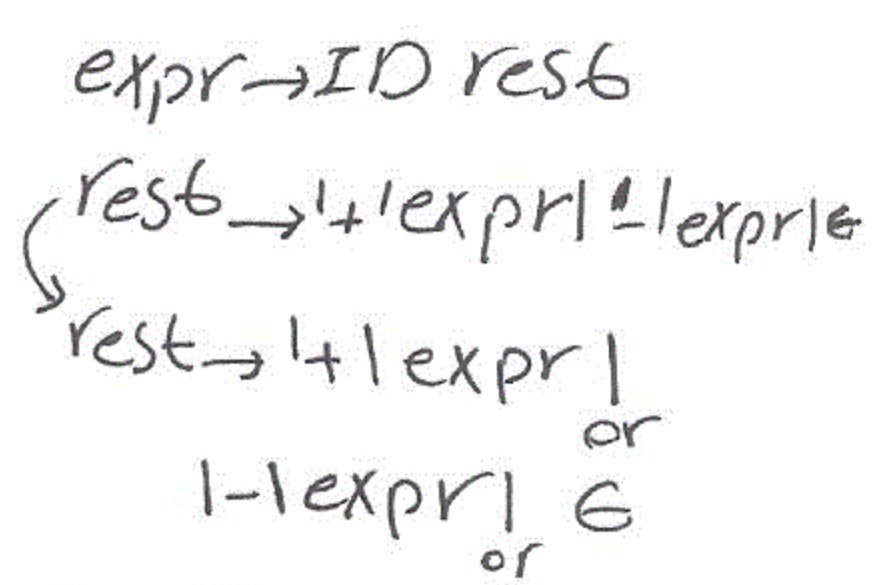 expr→ID rest
rest→'+'expr|'-'expr|ϵ
rest→'+'expr|
or
'-'expr| ϵ
or